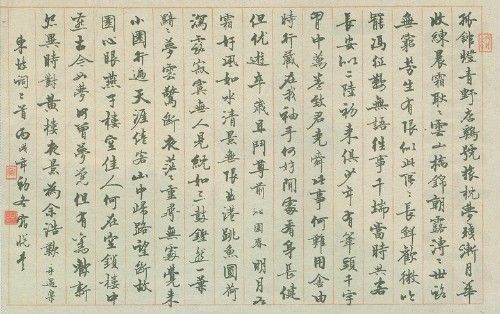 孤館燈青野店雞號旅枕夢殘漸月華
收練晨霜耿々雲山摛錦朝露漙々世路
無窮勞生有限似此區々長鮮歡微吟
罷憑征鞍無語往事千端當時共客
長安似二陸初來俱少年有筆頭千字
胸中萬卷致君堯舜此事何難用舍由
時行藏在我袖手何妨閒處看身長健
但優遊卒歲且鬥尊前 沁園春 明月如
霜好風如水清景無限曲港跳魚圓荷
瀉露寂寞無人見紞如三鼓鏗然一葉
黯々夢雲驚斷夜茫々重尋無處覺來
小園行遍天涯倦客山中歸路望斷故
園心眼燕子樓空佳人何在空鎖樓中
燕古今如夢何曾夢覺但有舊歡新
怨異時對黃樓夜景為余浩歎 永遇樂
東坡詞二首 丙戌年初